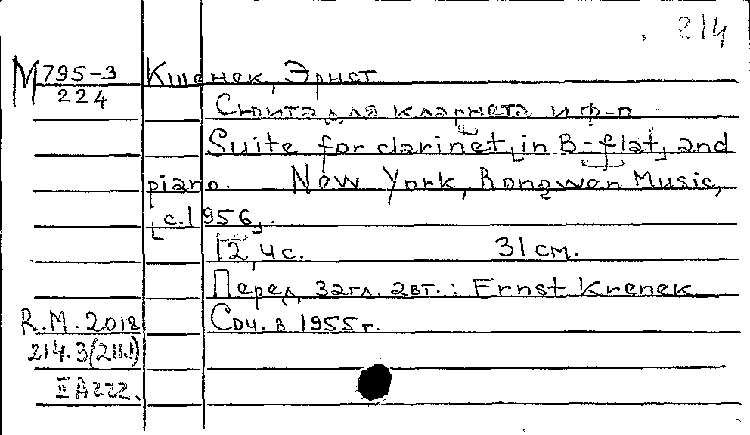 214
М 795-3
224
Кшенек, Эрнст
Сюита для кларнета и ф-п
Suite for clarinet, in B-flat, and
piano. New York, Rongwen Music,
[c.1956].
12, 4 с. 31 см.
Перед загл. авт.: Ernst Krenek
Соч. в 1955 г.
R.M. 2012
214.3(211.1)